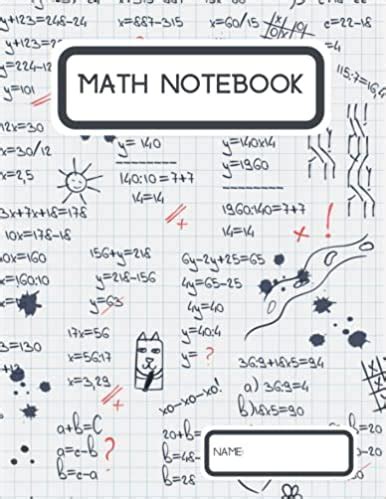 y+123=22
x=887-315
x=60/15
c=22-18
y+123=2
=4
y=224-12
115:7=16,4
y=101
MATH NOTEBOOK
12x=30
y= 140
y=140x14
x=30/12
y=1960
x=2,5
140:10=7+7
14=14
1960:140=7+7
14=14
3x+7x+18=178
10x=178-18
x=160:10
156+y=218
y=218-156
y=63
6y-2y+25=65
4y=65-25
4y=40
y=40:4
y= ?
17x=56
x=56:17
x=3,29
3=130
36:9+18x5=94
a) 36:9=4
b)18x5=90
xo-xo-xo!
a+b=c
a=c-b
b=c-a
?
20+b=
b=48-
b=20
NAME: